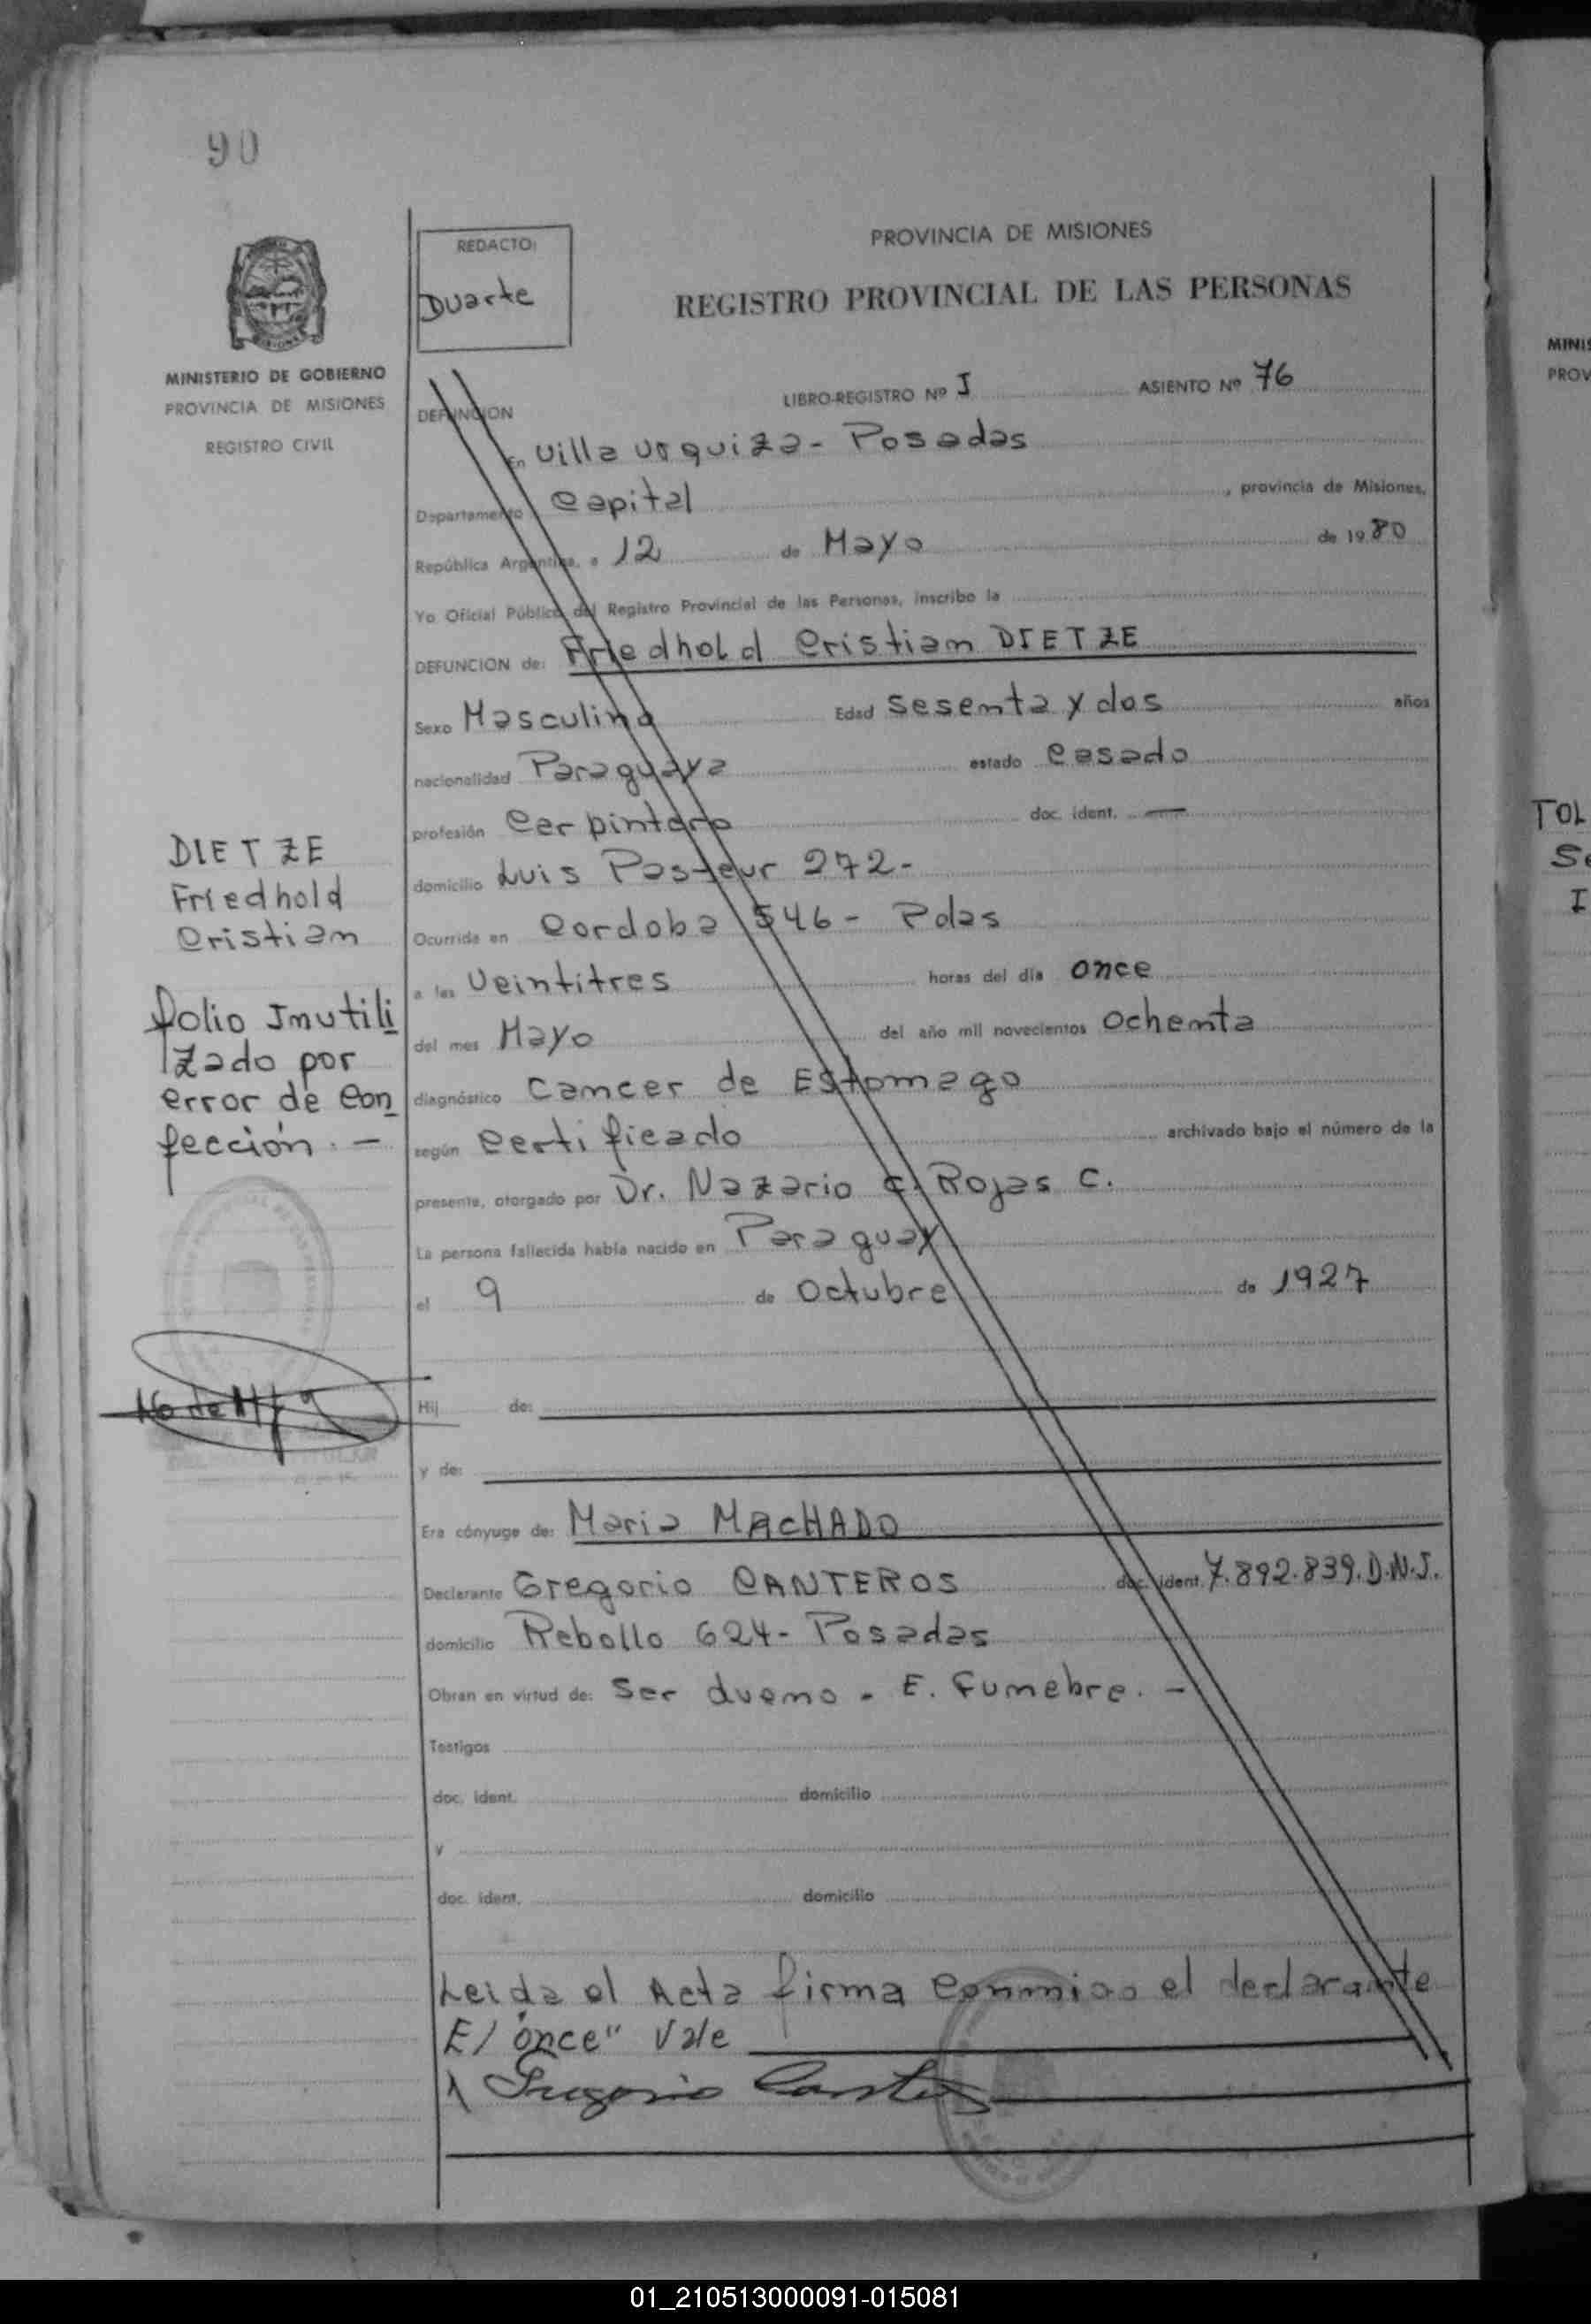 90
REDACTO:
Duarte
PROVINCIA DE MISIONES
REGISTRO PROVINCIAL DE LAS PERSONAS
MINISTERIO DE GOBIERNO
PROVINCIA DE MISIONES
REGISTRO CIVIL
LIBRO-REGISTRO Nº I ASIENTO Nº 76
DEFUNCION
En Villa Urquiza - Posadas
Departamento Capital, provincia de Misiones,
República Argentina, a 12 de Mayo de 1980
Yo Oficial Público del Registro Provincial de las Personas, inscribo la
DEFUNCION de: Friedhold Cristian DIETZE
Sexo Masculino Edad Sesenta y dos años
nacionalidad Paraguaya estado Casado
profesión Carpintero doc. ident. —
domicilio Luis Pasteur 272-
Ocurrida en Cordoba 546 - Pdas
a las Veintitres horas del día once
del mes Mayo del año mil novecientos Ochenta
diagnóstico Cancer de Estomago
según Certificado archivado bajo el número de la
presente, otorgado por Dr. Nazario C. Rojas C.
La persona fallecida había nacido en Paraguay
el 9 de Octubre de 1927
Hij de:
y de:
Era cónyuge de: Maria MACHADO
Declarante Gregorio CANTEROS doc. ident. 7.892.839. D.N.I.
domicilio Rebollo 624- Posadas
Obran en virtud de: Ser dueno - E. Funebre. -
Testigos
doc. ident. domicilio
y
doc. ident. domicilio
Leida el Acta firma conmigo el declarante
E/"once" Vale
DIETZE
Friedhold
Cristian
folio Inutili
zado por
error de Con
fección. -
MINIS
PROV
TOL
I
01_210513000091-015081